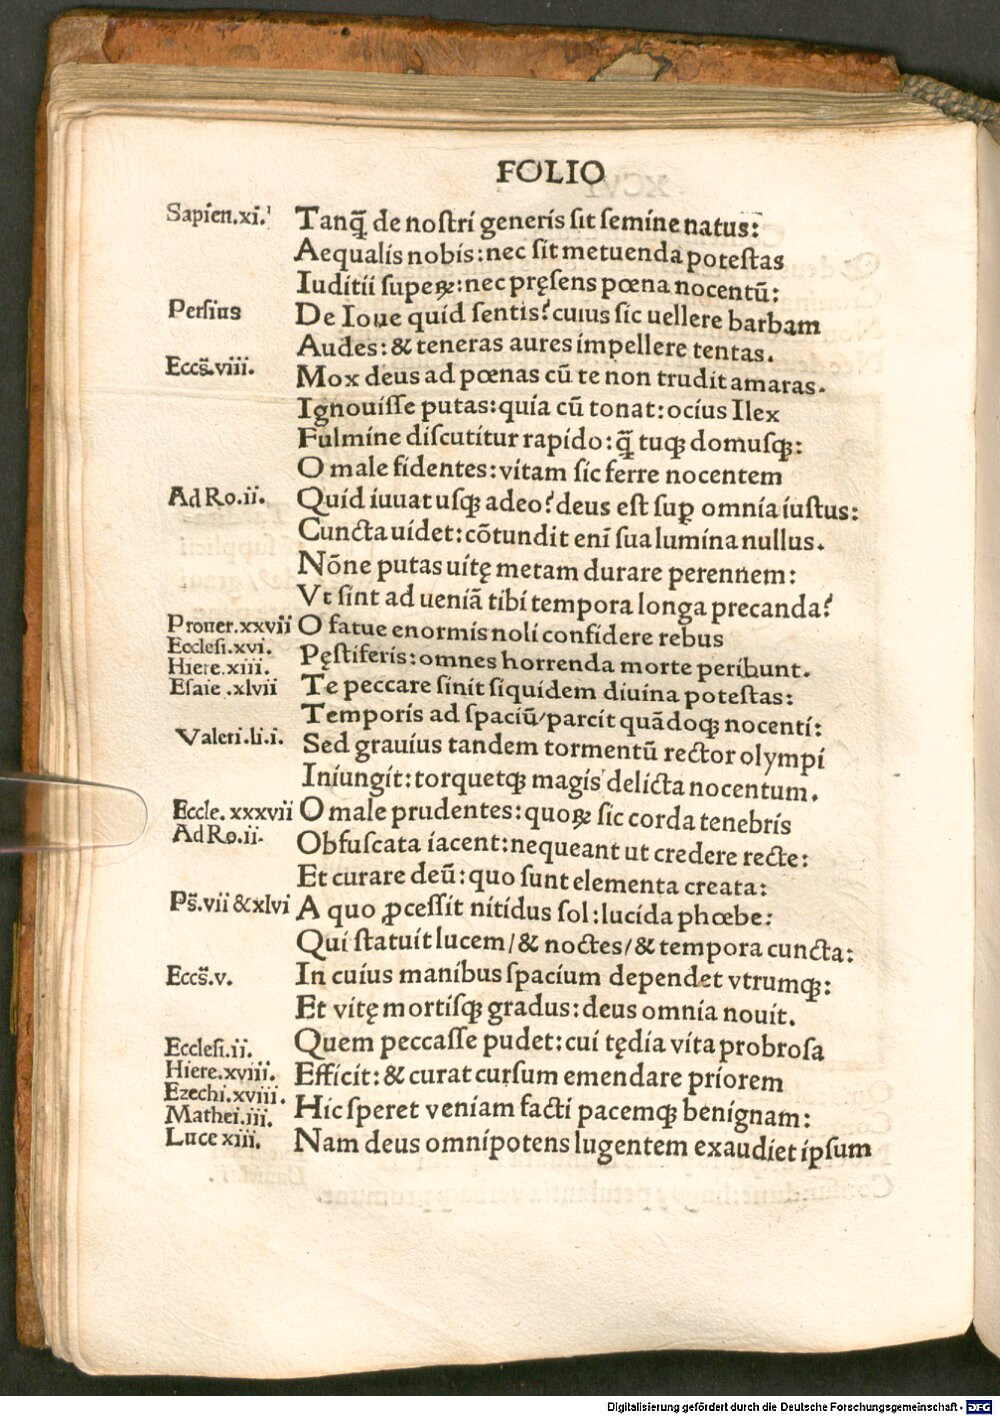 FOLIO
Sapien.xi. Tanq̃ de noſtri generis ſit ſemine natus:
Aequalis nobis: nec ſit metuenda poteſtas
Iuditii supeꝝ: nec pręſens pœna nocentũ:
Perſius De Ioue quid ſentis? cuius ſic uellere barbam
Audes: & teneras aures impellere tentas.
Eccs̃.viii. Mox deus ad pœnas cũ te non trudit amaras.
Ignouiſſe putas: quia cũ tonat: ocius Ilex
Fulmine diſcutitur rapido: q̃ tuqȝ domuſqȝ:
O male fidentes: vitam ſic ferre nocentem
Ad Ro.ii. Quid iuuat uſqȝ adeo? deus eſt ſuꝑ omnia iuſtus:
Cuncta uidet: cõtundit eni ſua lumina nullus.
Nõne putas uitę metam durare perennem:
Vt ſint ad ueniã tibi tempora longa precanda?
Prouer.xxvii O fatue enormis noli confidere rebus
Eccleſi.xvi.
Hiere.xiii. Pęſtiferis: omnes horrenda morte peribunt.
Eſaie .xlvii Te peccare ſinit ſiquidem diuina poteſtas:
Temporis ad ſpaciũ/parcit quãdoqȝ nocenti:
Valeri.li.i. Sed grauius tandem tormentũ rector olympi
Iniungit: torquetqȝ magis delicta nocentum.
Eccle. xxxvii O male prudentes: quoꝝ ſic corda tenebris
Ad Ro.ii. Obfuſcata iacent: nequeant ut credere recte:
Et curare deũ: quo ſunt elementa creata:
Ps̃.vii &xlvi A quo ꝓceſſit nitidus ſol: lucida phœbe:
Qui ſtatuit lucem/& noctes/& tempora cuncta:
Eccs̃.v. In cuius manibus ſpacium dependet vtrumqȝ:
Et vitę mortiſqȝ gradus: deus omnia nouit.
Eccleſi.ii. Quem peccaſſe pudet: cui tędia vita probroſa
Hiere.xviii. Efficit: & curat curſum emendare priorem
Ezechi.xviii.
Mathei.iii. Hic ſperet veniam facti pacemqȝ benignam:
Luce xiii. Nam deus omnipotens lugentem exaudiet ipſum
Digitalisierung gefördert durch die Deutsche Forschungsgemeinschaft - DFG